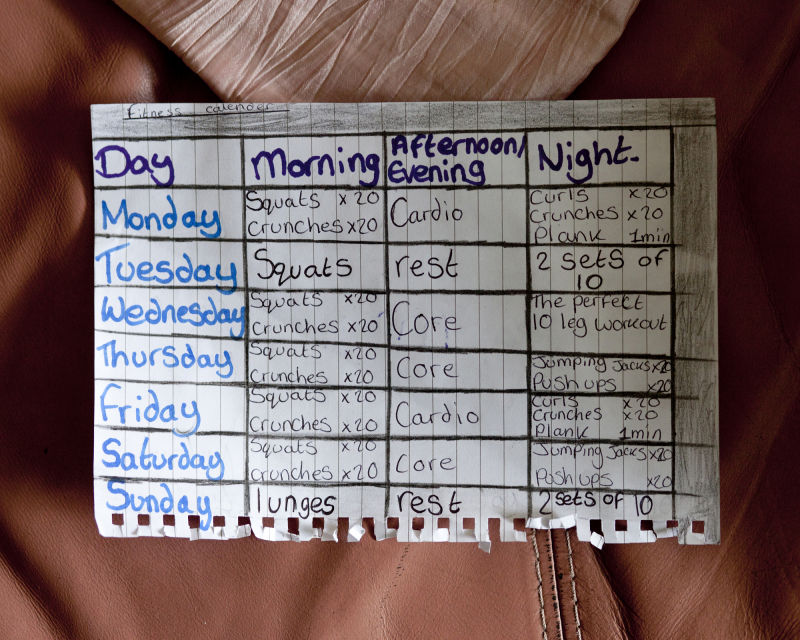 Fitness calender
Day Morning Afternoon/ Evening Night.
Monday
Squats x20
Crunches x20
Cardio
Curls x20
Crunches x20
Plank 1min
Tuesday
Squats
rest
2 sets of
10
Wednesday
Squats x20
Crunches x20
Core
The perfect
10 leg workout
Thursday
Squats x20
Crunches x20
Core
Jumping Jacks x20
Push ups x20
Friday
Squats x20
Crunches x20
Cardio
Curls x20
Crunches x20
Plank 1min
Saturday
Squats x20
Crunches x20
Core
Jumping Jacks x20
Push ups x20
Sunday
lunges
rest
2 sets of 10